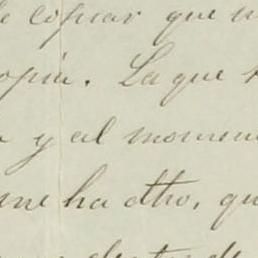 copiar que
copia. La que
y al momen
me ha dho, qu